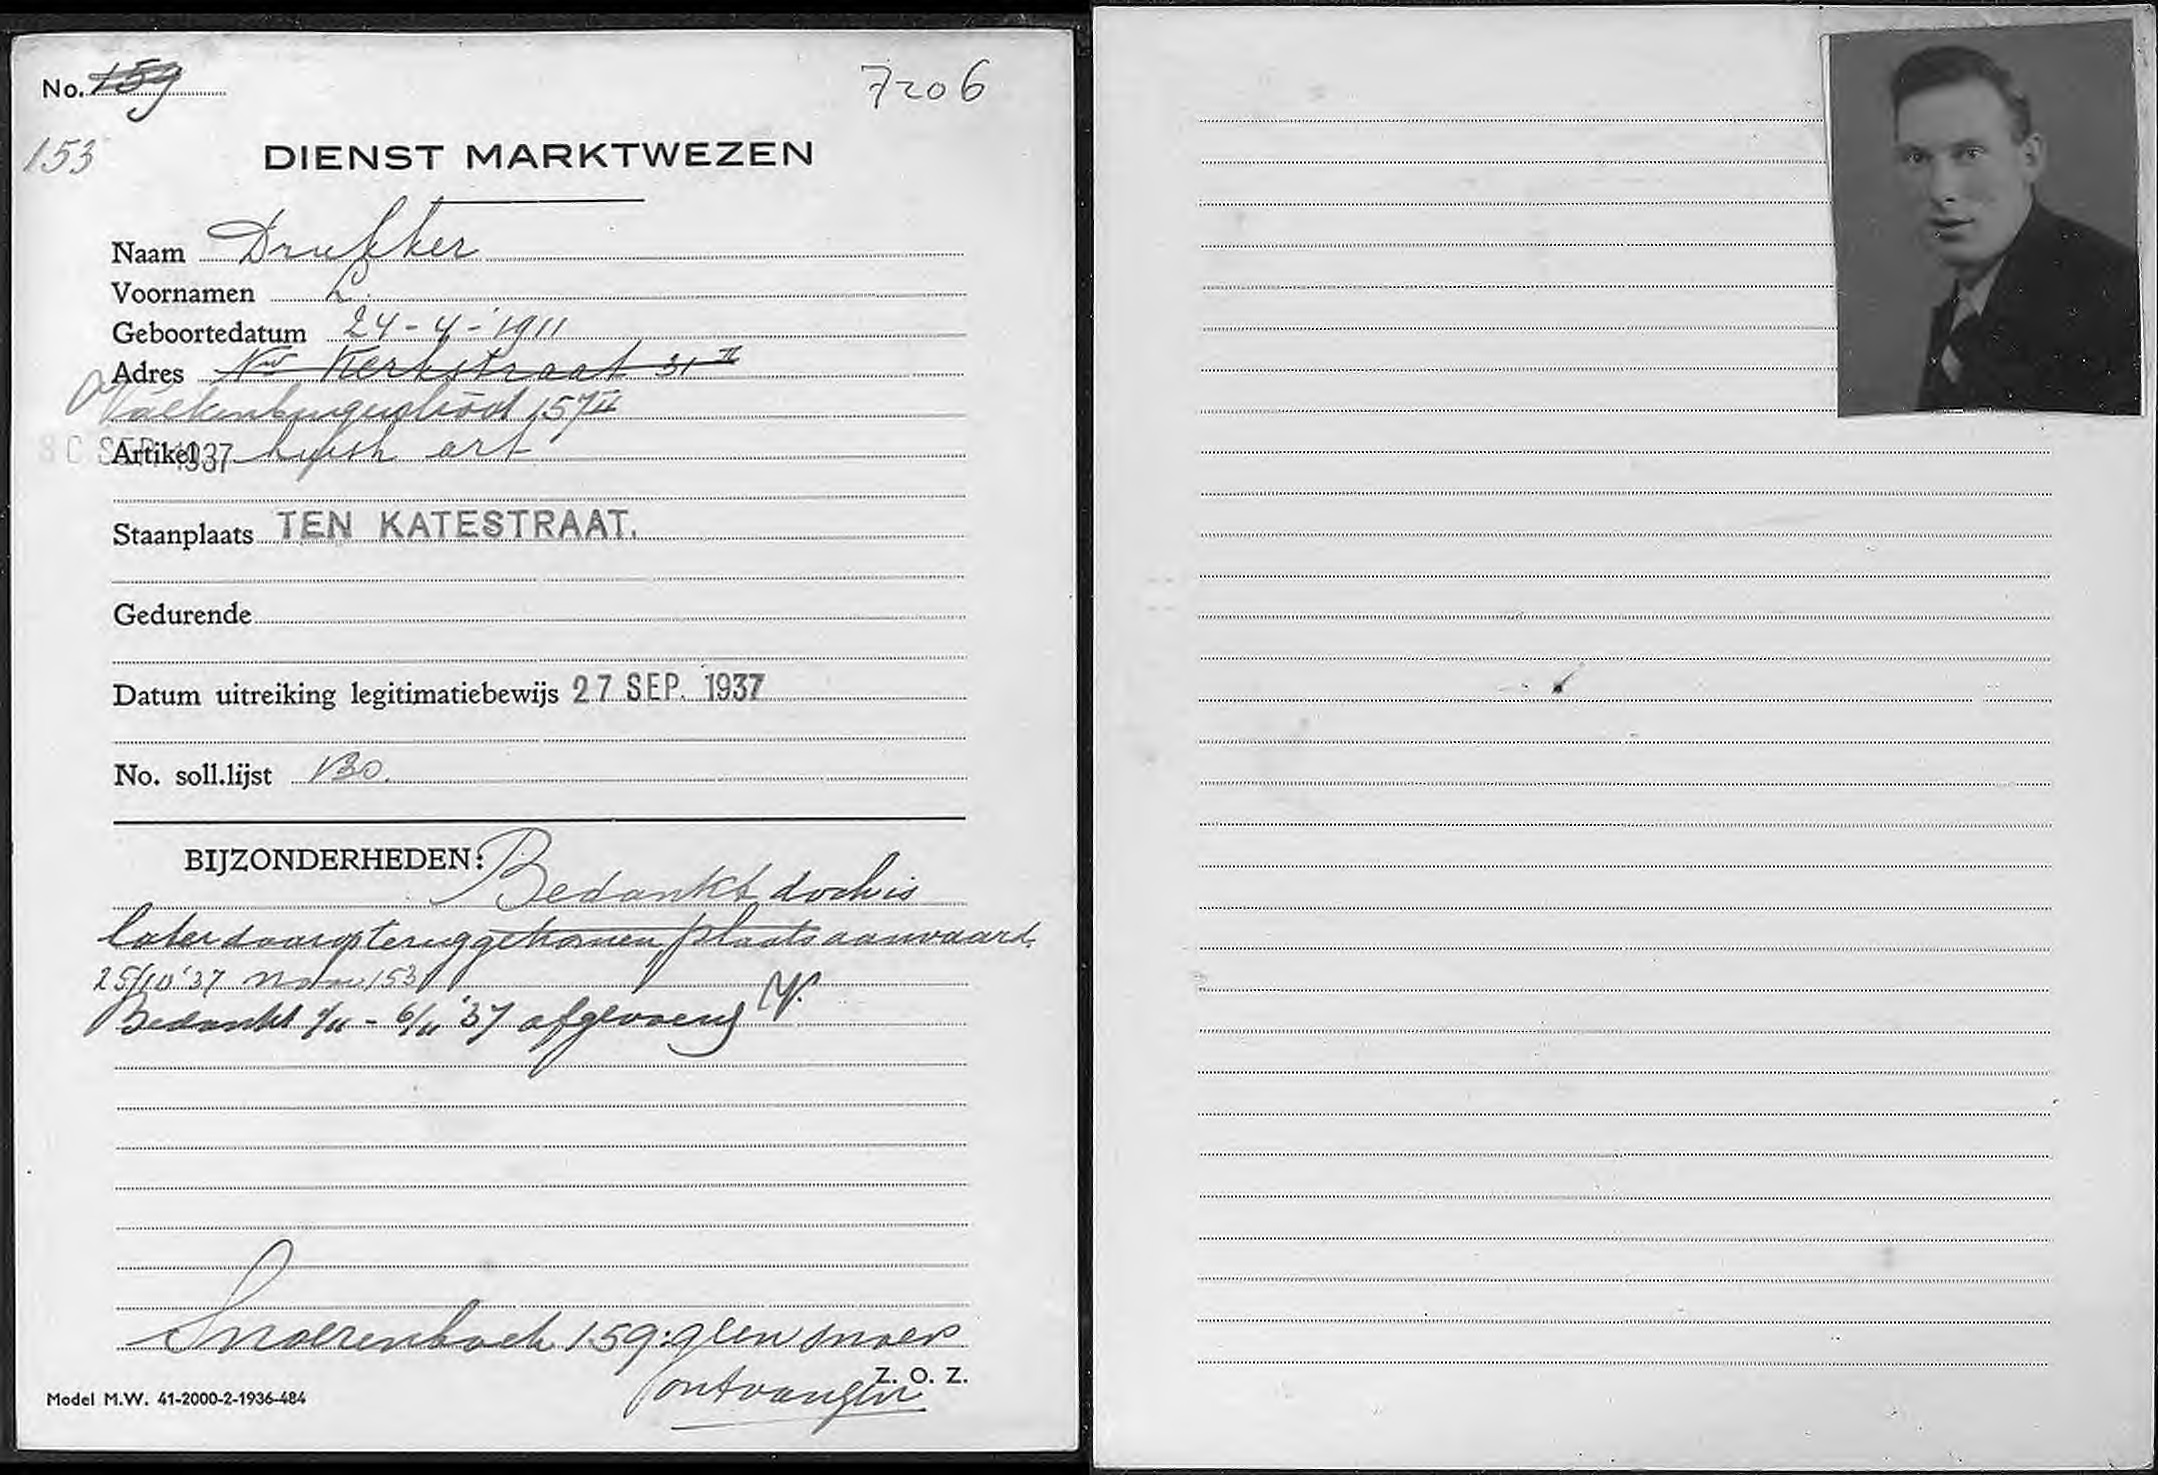 No. 159
7206
153
DIENST MARKTWEZEN
Naam Drukker
Voornamen L.
Geboortedatum 24-4-1911
Adres Nw Kerkstraat 31 II
Valkenburgerstraat 157 II
Artikel huish art
SEP. 1937
Staanplaats TEN KATESTRAAT.
Gedurende
Datum uitreiking legitimatiebewijs 27 SEP. 1937
No. soll.lijst 130.
BIJZONDERHEDEN: Bedankt doch is
later daarop teruggekomen, plaats aanvaard.
25/10 '37 153
Bedankt 1/11 - 6/11 '37 afgevoerd
Snoerenboek 159: geen snoer
ontvangen
Z. O. Z.
Model M.W. 41-2000-2-1936-484